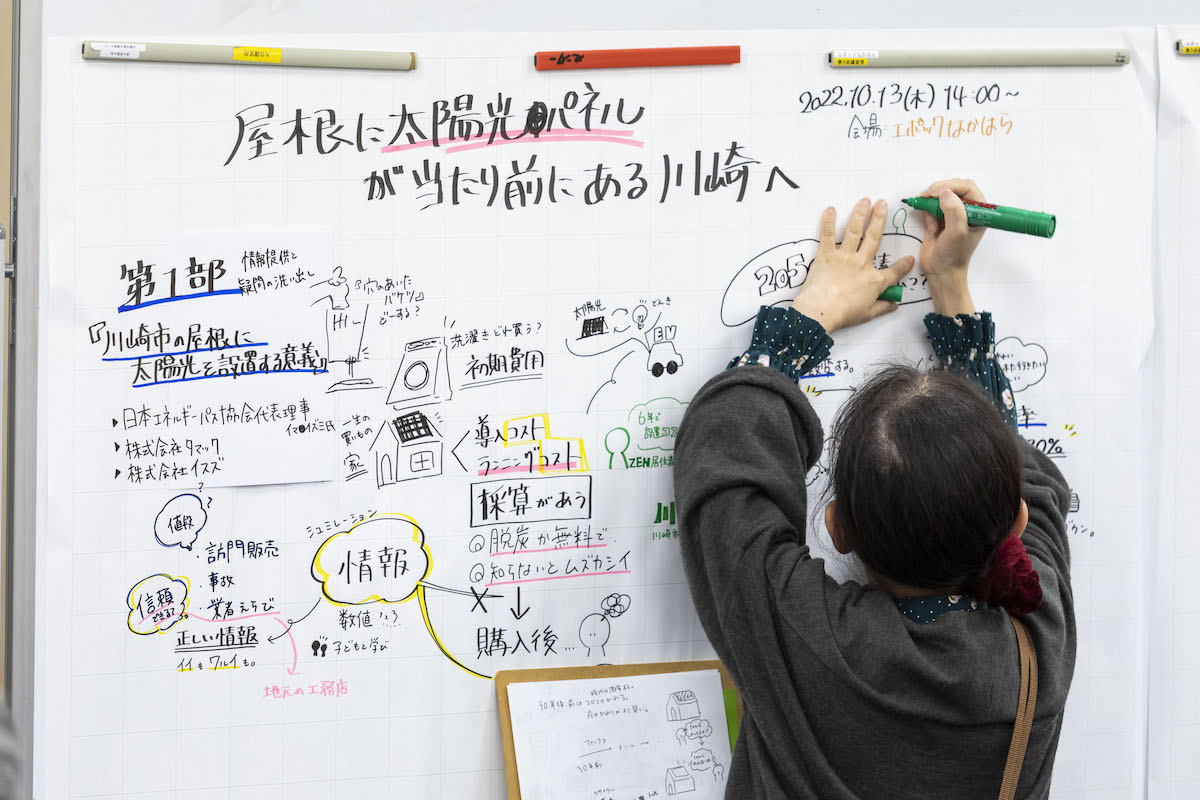 屋根に太陽光パネル
が当たり前にある川崎へ
2022.10.13(木) 14:00〜
会場:エポックなかはら
第1部
情報提供と
疑問の洗い出し
『川崎市の屋根に
太陽光を設置する意義』
▶日本エネルギーパス協会代表理事
▶株式会社タマック
▶株式会社イスズ
『穴のあいた
バケツ』
どーする?
洗濯きどれ買う?
初期費用
一生の
買いもの
家
導入コスト
ランニングコスト
採算があう
@脱炭か無料で
@知らないとムズカシイ
購入後...
太陽光
でんき
EV
6年で
設置
ZEN居住者
川
川崎市
205
する。
率
値段
??
・訪問販売
・事故
・業者えらび
信頼
できる?
正しい情報
イイもワルイも。
地元の工務店
シュミレーション
情報
数値
子どもと学び
30年前